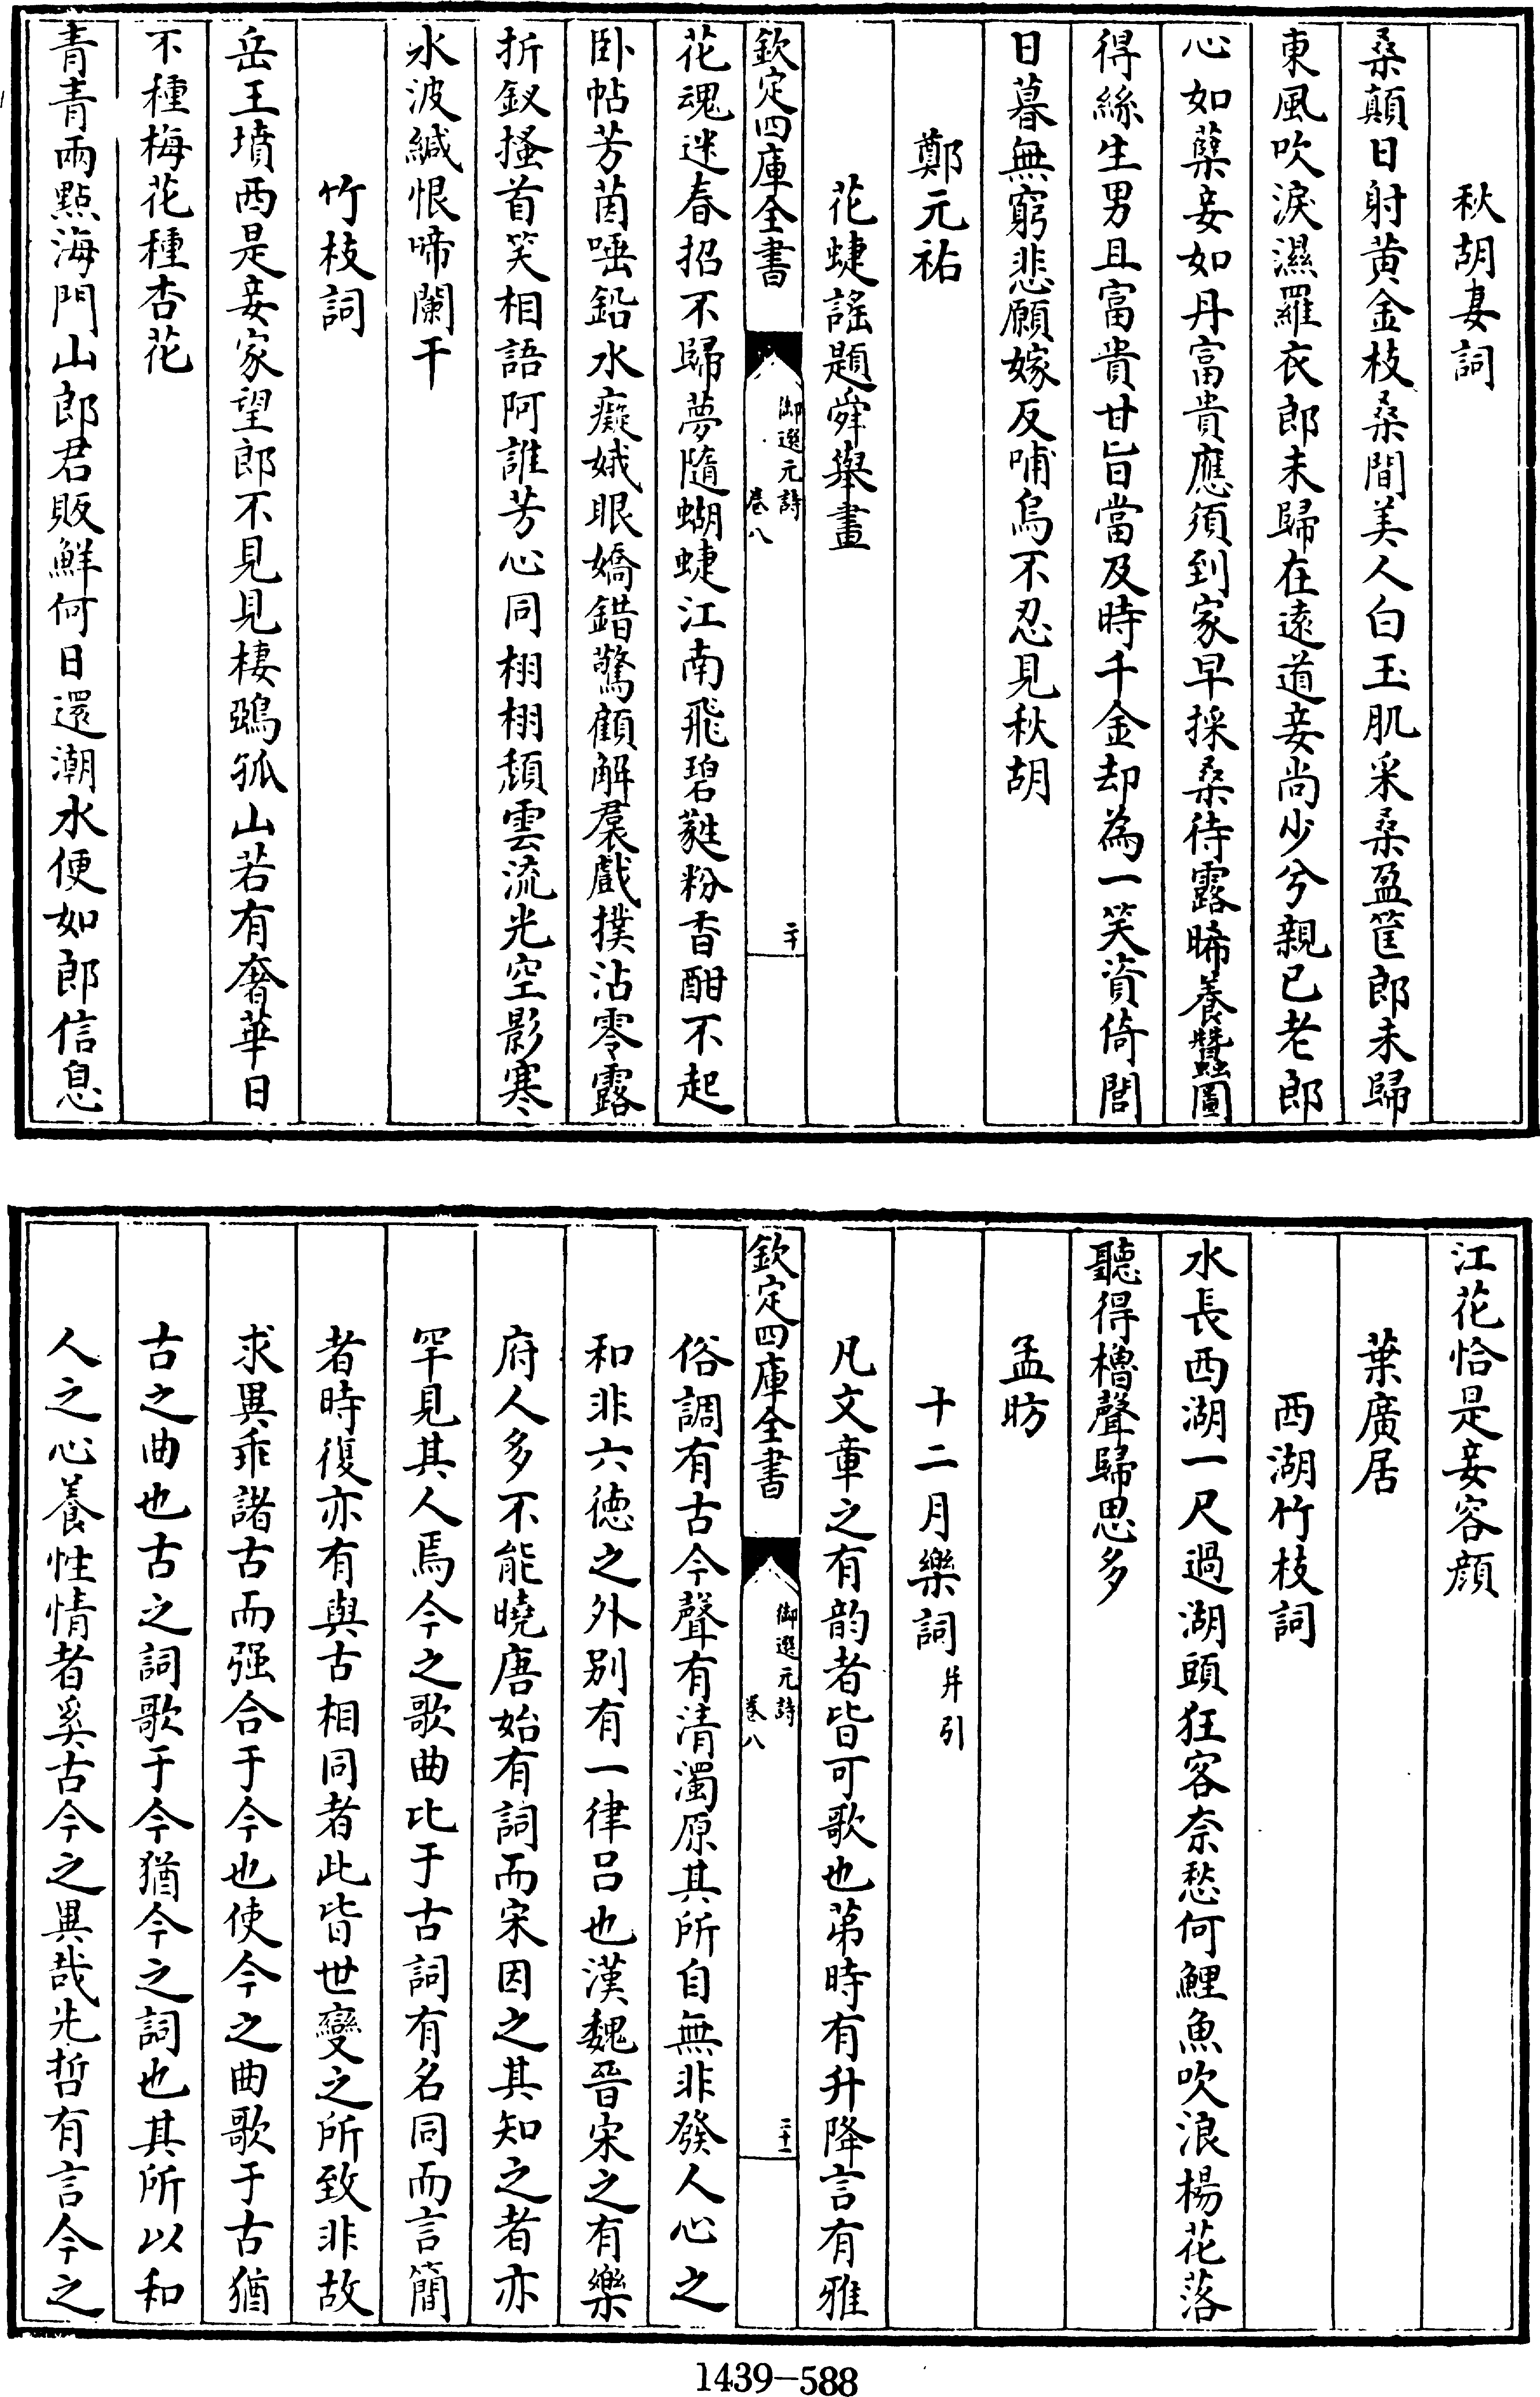 秋胡妻詞
桑顛日射黄金枝桑間美人白玉肌采桑盈筐郎未歸
東風吹淚濕羅衣郎未歸在遠道妾尚少兮親已老郎
心如蘗妾如丹富貴應須到家早採桑待露晞養蠶圖
得絲生男且富貴甘旨當及時千金却為一笑資倚閭
日暮無窮悲願嫁反哺烏不忍見秋胡
鄭元祐
花蜨謡題舜舉畫
欽定四庫全書
御選元詩
卷八
二十
花魂迷春招不歸夢隨蝴蜨江南飛碧蕤粉香酣不起
卧帖芳茵唾鉛水癡娥眼嬌錯驚顧解裠戲撲沾零露
折釵搔首笑相語阿誰芳心同栩栩頽雲流光空影寒
水波緘恨啼闌干
竹枝詞
岳王墳西是妾家望郎不見見棲鵶孤山若有奢華日
不種梅花種杏花
青青兩點海門山郎君販鮮何日還潮水便如郎信息
江花恰是妾容顔
葉廣居
西湖竹枝詞
水長西湖一尺過湖頭狂客奈愁何鯉魚吹浪楊花落
聽得櫓聲歸思多
孟昉
十二月樂詞并引
凡文章之有韵者皆可歌也苐時有升降言有雅
欽定四庫全書
御選元詩
卷八
二十一
俗調有古今聲有清濁原其所自無非發人心之
和非六徳之外别有一律吕也漢魏晉宋之有樂
府人多不能曉唐始有詞而宋因之其知之者亦
罕見其人焉今之歌曲比于古詞有名同而言簡
者時復亦有與古相同者此皆世變之所致非故
求異乖諸古而强合于今也使今之曲歌于古猶
古之曲也古之詞歌于今猶今之詞也其所以和
人之心養性情者奚古今之異哉先哲有言今之
1439-588